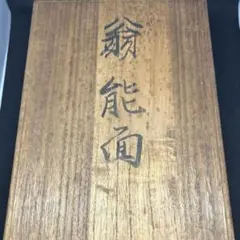 翁能面